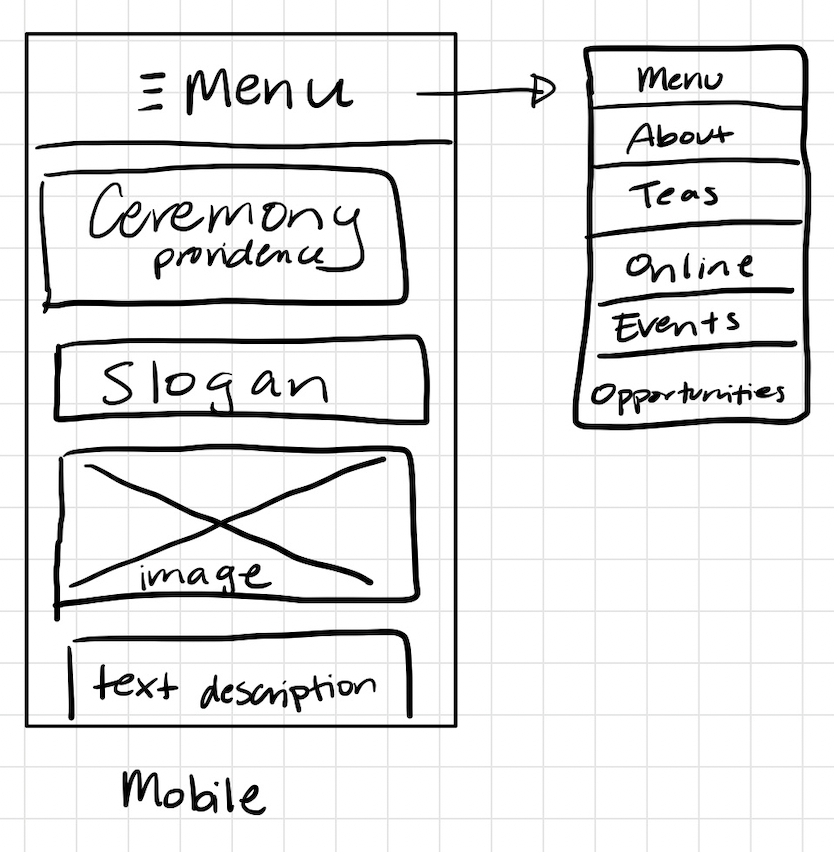 Menu
Ceremony
providence
Slogan
image
text description
Mobile
Menu
About
Teas
Online
Events
Opportunities